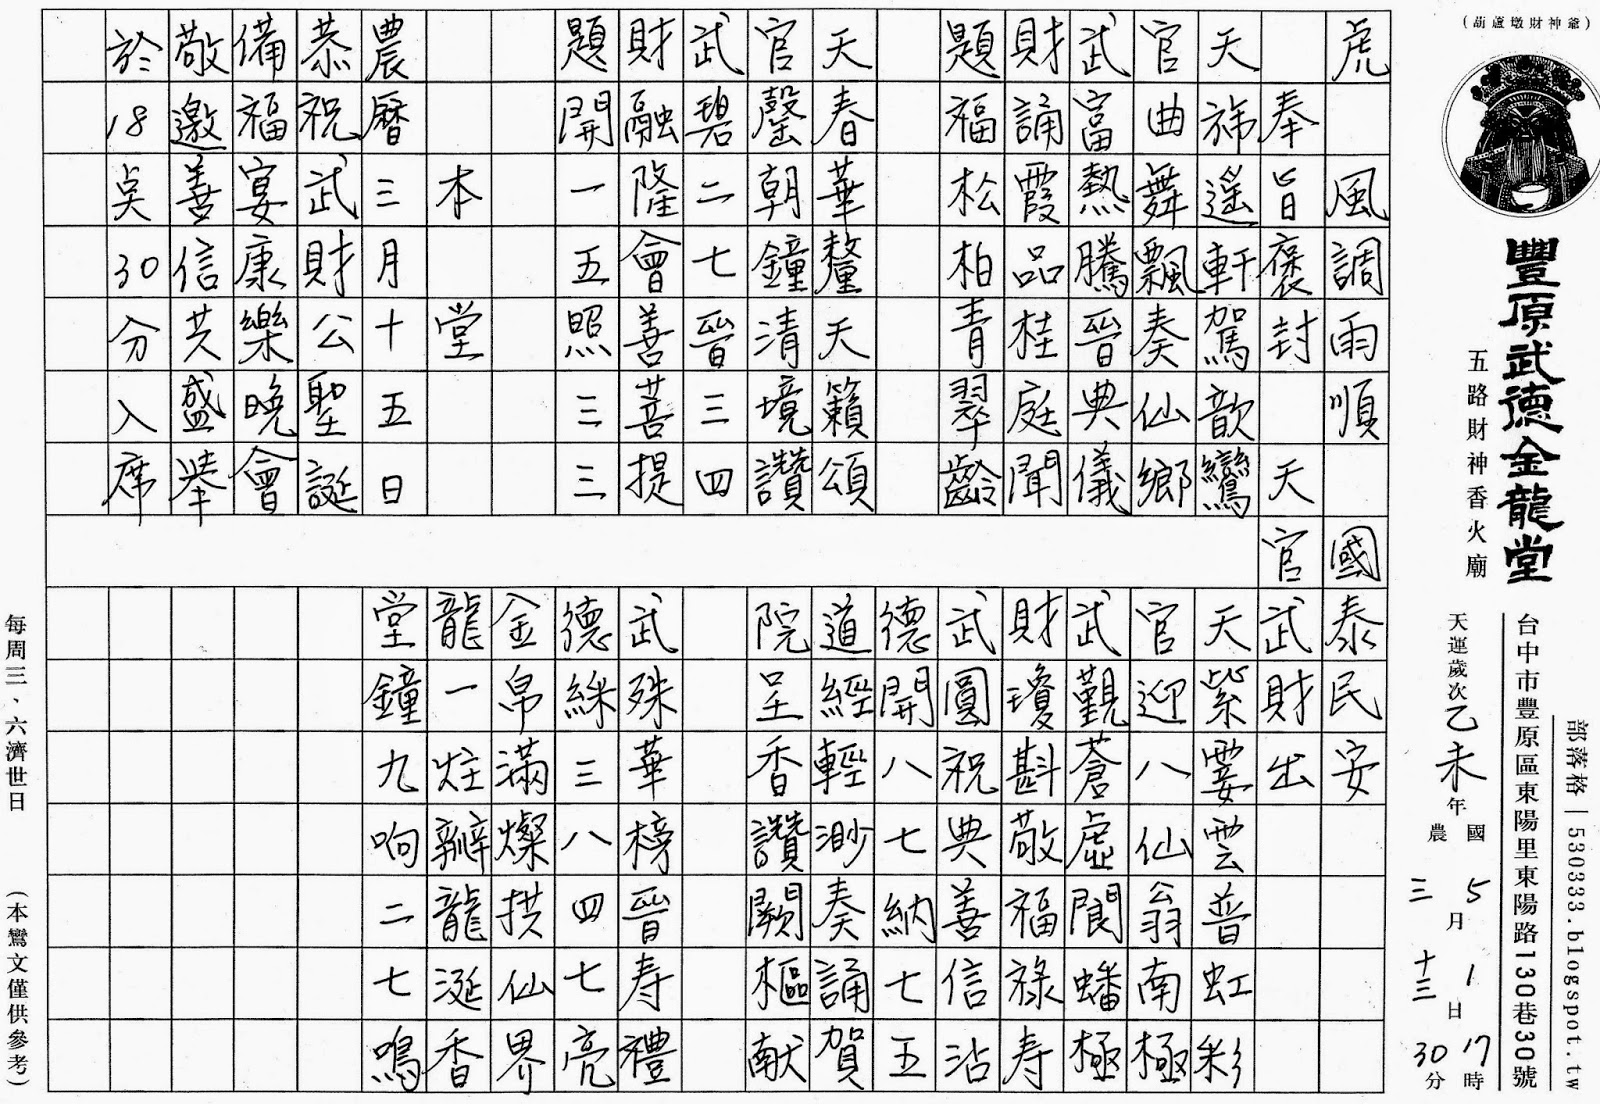 (葫蘆墩財神爺)
豐原武德金龍堂
五路財神香火廟
部落格|530333.blogspot.tw
台中市豐原區東陽里東陽路130巷30號
天運歲次乙未年
國 5月1日17時
農 三月十三日30分
虎 風調雨順 國泰民安
奉旨褒封 天官武財出
天旆遙軒駕歆鸞
官曲舞飄奏仙鄉
武富熱騰晉典儀
財誦霞品桂庭聞
題福松柏青翠齡
天春華釐天籟頌
官罄朝鐘清境讚
武碧二七晉三四
財融隆會善菩提
題開一五照三三
本堂
農曆三月十五日
恭祝武財公聖誕
備福宴康樂晚會
敬邀善信共盛舉
於18点30分入席
天紫霎雲普虹彩
官迎八仙翁南極
武觀蒼虛閬蟠極
財瓊斟敬福祿寿
武圓祝典善信沾
德開八七納七五
道經輕渺奏誦賀
院呈香讚闕樞献
武殊華榜晉寿禮
德綵三八四七亮
金帛滿燦拱仙界
龍一炷辦龍涎香
堂鐘九响二七鳴
每周三、六濟世日
(本鸞文僅供參考)